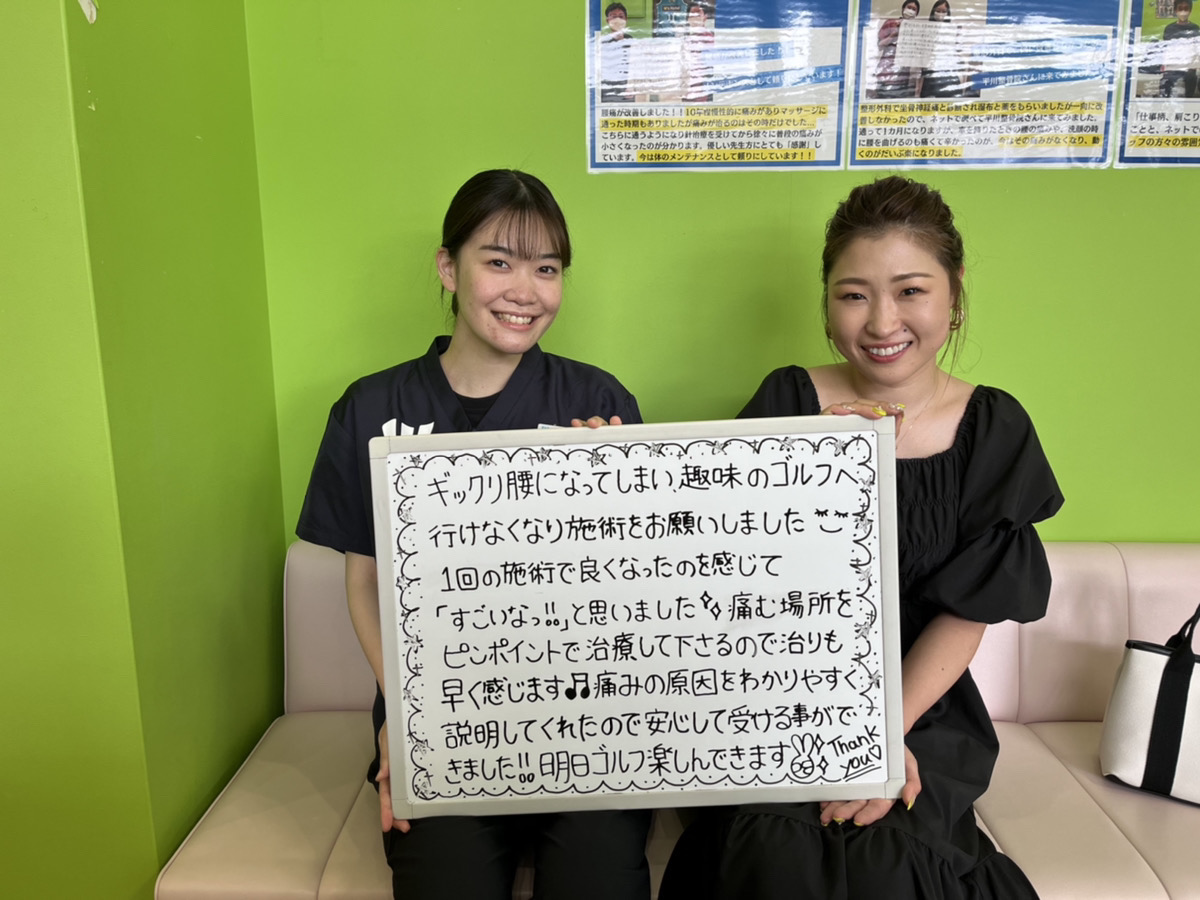 腰痛が改善しました！！10年程慢性的に痛みがありマッサージに
通った時期もありましたが痛みが治るのはその時だけでした…
こちらに通うようになり針治療を受けてから徐々に普段の傷みが
小さくなったのが分かります。優しい先生方にとても「感謝」し
ています。今は体のメンテナンスとして頼りにしています！！
平川整骨院さんに来てみ
整形外科で坐骨神経痛と診断され湿布と薬をもらいましたが一向に改
善しなかったので、ネットで調べて平川整骨院さんに来てみました。
通って1カ月になりますが、車を降りたときの腰の傷みや、洗顔の時
に腰を曲げるのも痛くて辛かったのが、今はその痛みがなくなり、動
くのがだいぶ楽になりました。
「仕事柄、肩こり
ことと、ネットで
ッフの方々の雰囲
ギックリ腰になってしまい、趣味のゴルフへ
行けなくなり施術をお願いしました
1回の施術で良くなったのを感じて
「すごいなっ!!」と思いました 痛む場所を
ピンポイントで治療して下さるので治りも
早く感じます♫痛みの原因をわかりやすく
説明してくれたので安心して受ける事がで
きました!! 明日ゴルフ楽しんできます
Thank
you♡